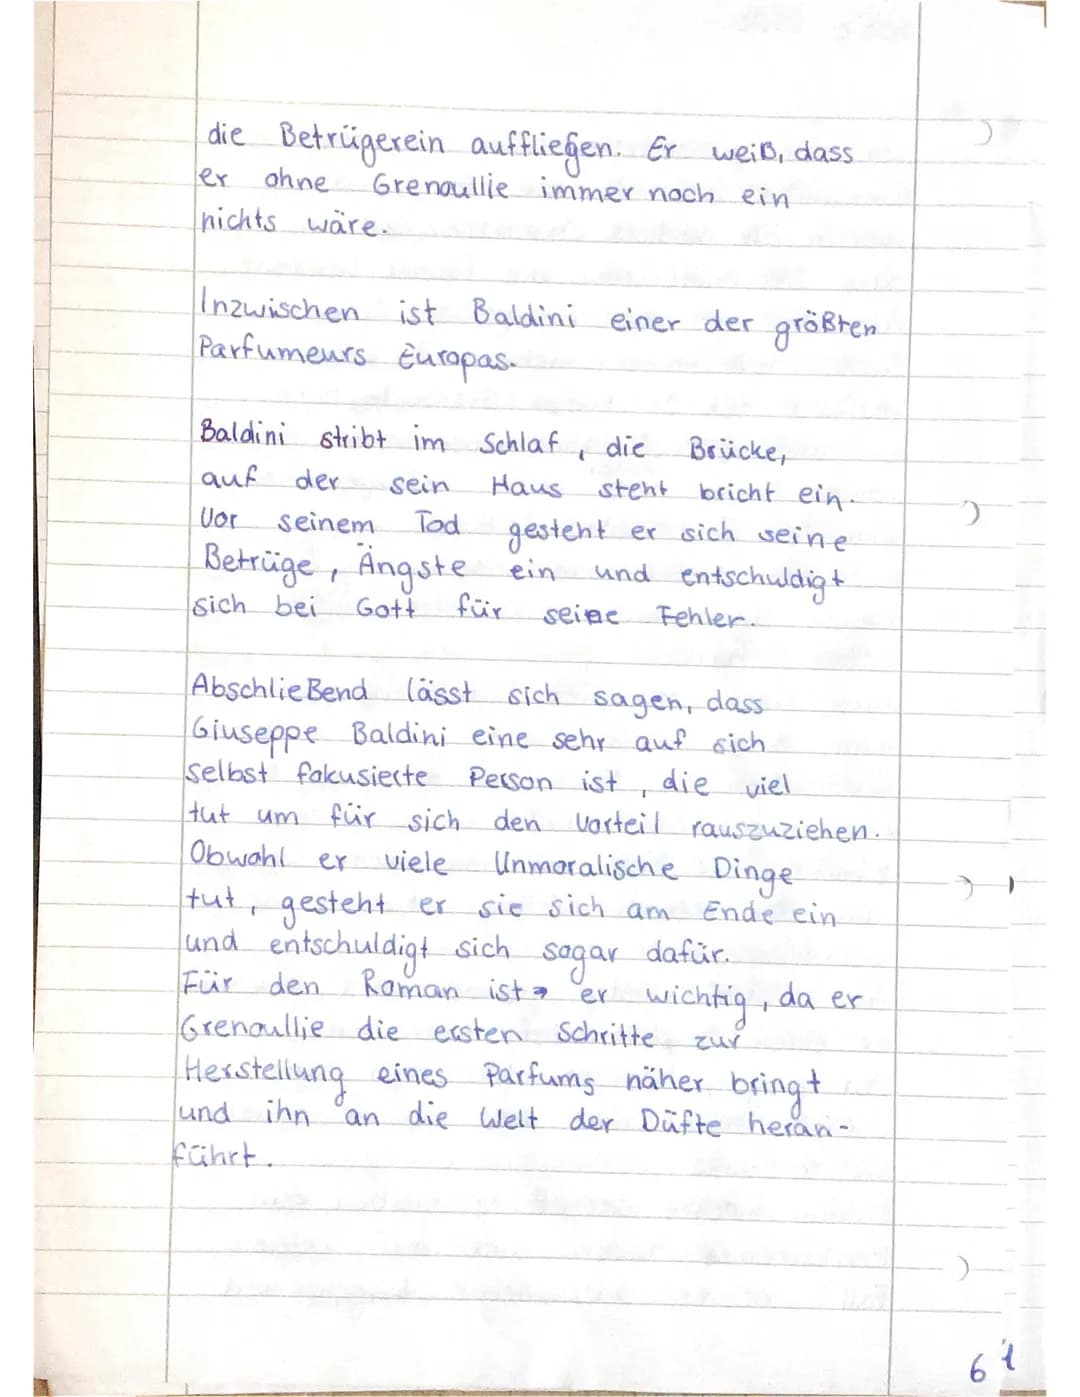 die Betrügerein auffliegen. Er weiß, dass
er ohne Grenoullie immer noch ein
nichts wäre.
Inzwischen ist Baldini einer der größten
Parfumeurs Europas.
Baldini stribt im Schlaf, die Brücke,
auf der sein Haus steht bricht ein.
Vor seinem Tod gesteht er sich seine
Betrüge, Ängste ein und entschuldigt
sich bei Gott für seine Fehler.
Abschließend lässt sich sagen, dass
Giuseppe Baldini eine sehr auf sich
selbst fokusierte Person ist, die viel
tut um für sich den Vorteil rauszuziehen.
Obwohl er viele Unmoralische Dinge
tut, gesteht er sie sich am Ende ein
und entschuldigt sich sogar dafür.
Für den Roman ist er wichtig, da er
Grenoullie die ersten Schritte zur
Herstellung eines Parfums näher bringt
und ihn an die Welt der Düfte heran-
führt.
6